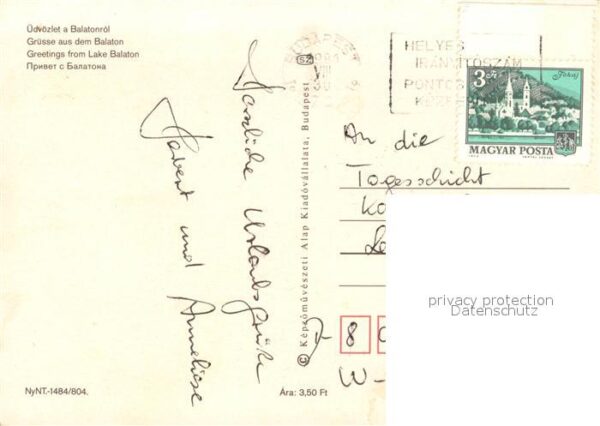 Üdvözlet a Balatonról
Grüsse aus dem Balaton
Greetings from Lake Balaton
Привет с Балатона
Herzliche Urlaubsgrüße
Herbert und Anneliese
NyNT.-1484/804.
Ára: 3,50 Ft
© Képzőművészeti Alap Kiadóvállalata, Budapest
BUDAPEST
HELYES
IRÁNYÍTÓSZÁM
PONTOS
3 Ft
Tokaj
MAGYAR POSTA
An die
Tagesschicht
8
W-
privacy protection
Datenschutz